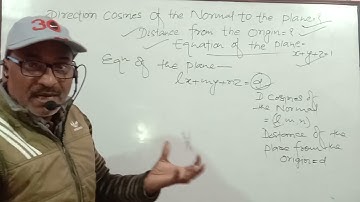 Direction Cosines of the Normal to the plane?
Distance from the Origin=?
Equation of the plane-
x+y+z=1
Eqn of the plane—
lx+my+nz=d
D Cosines of
the Normal
=(l m n)
Distance of the
plane from the
Origin=d